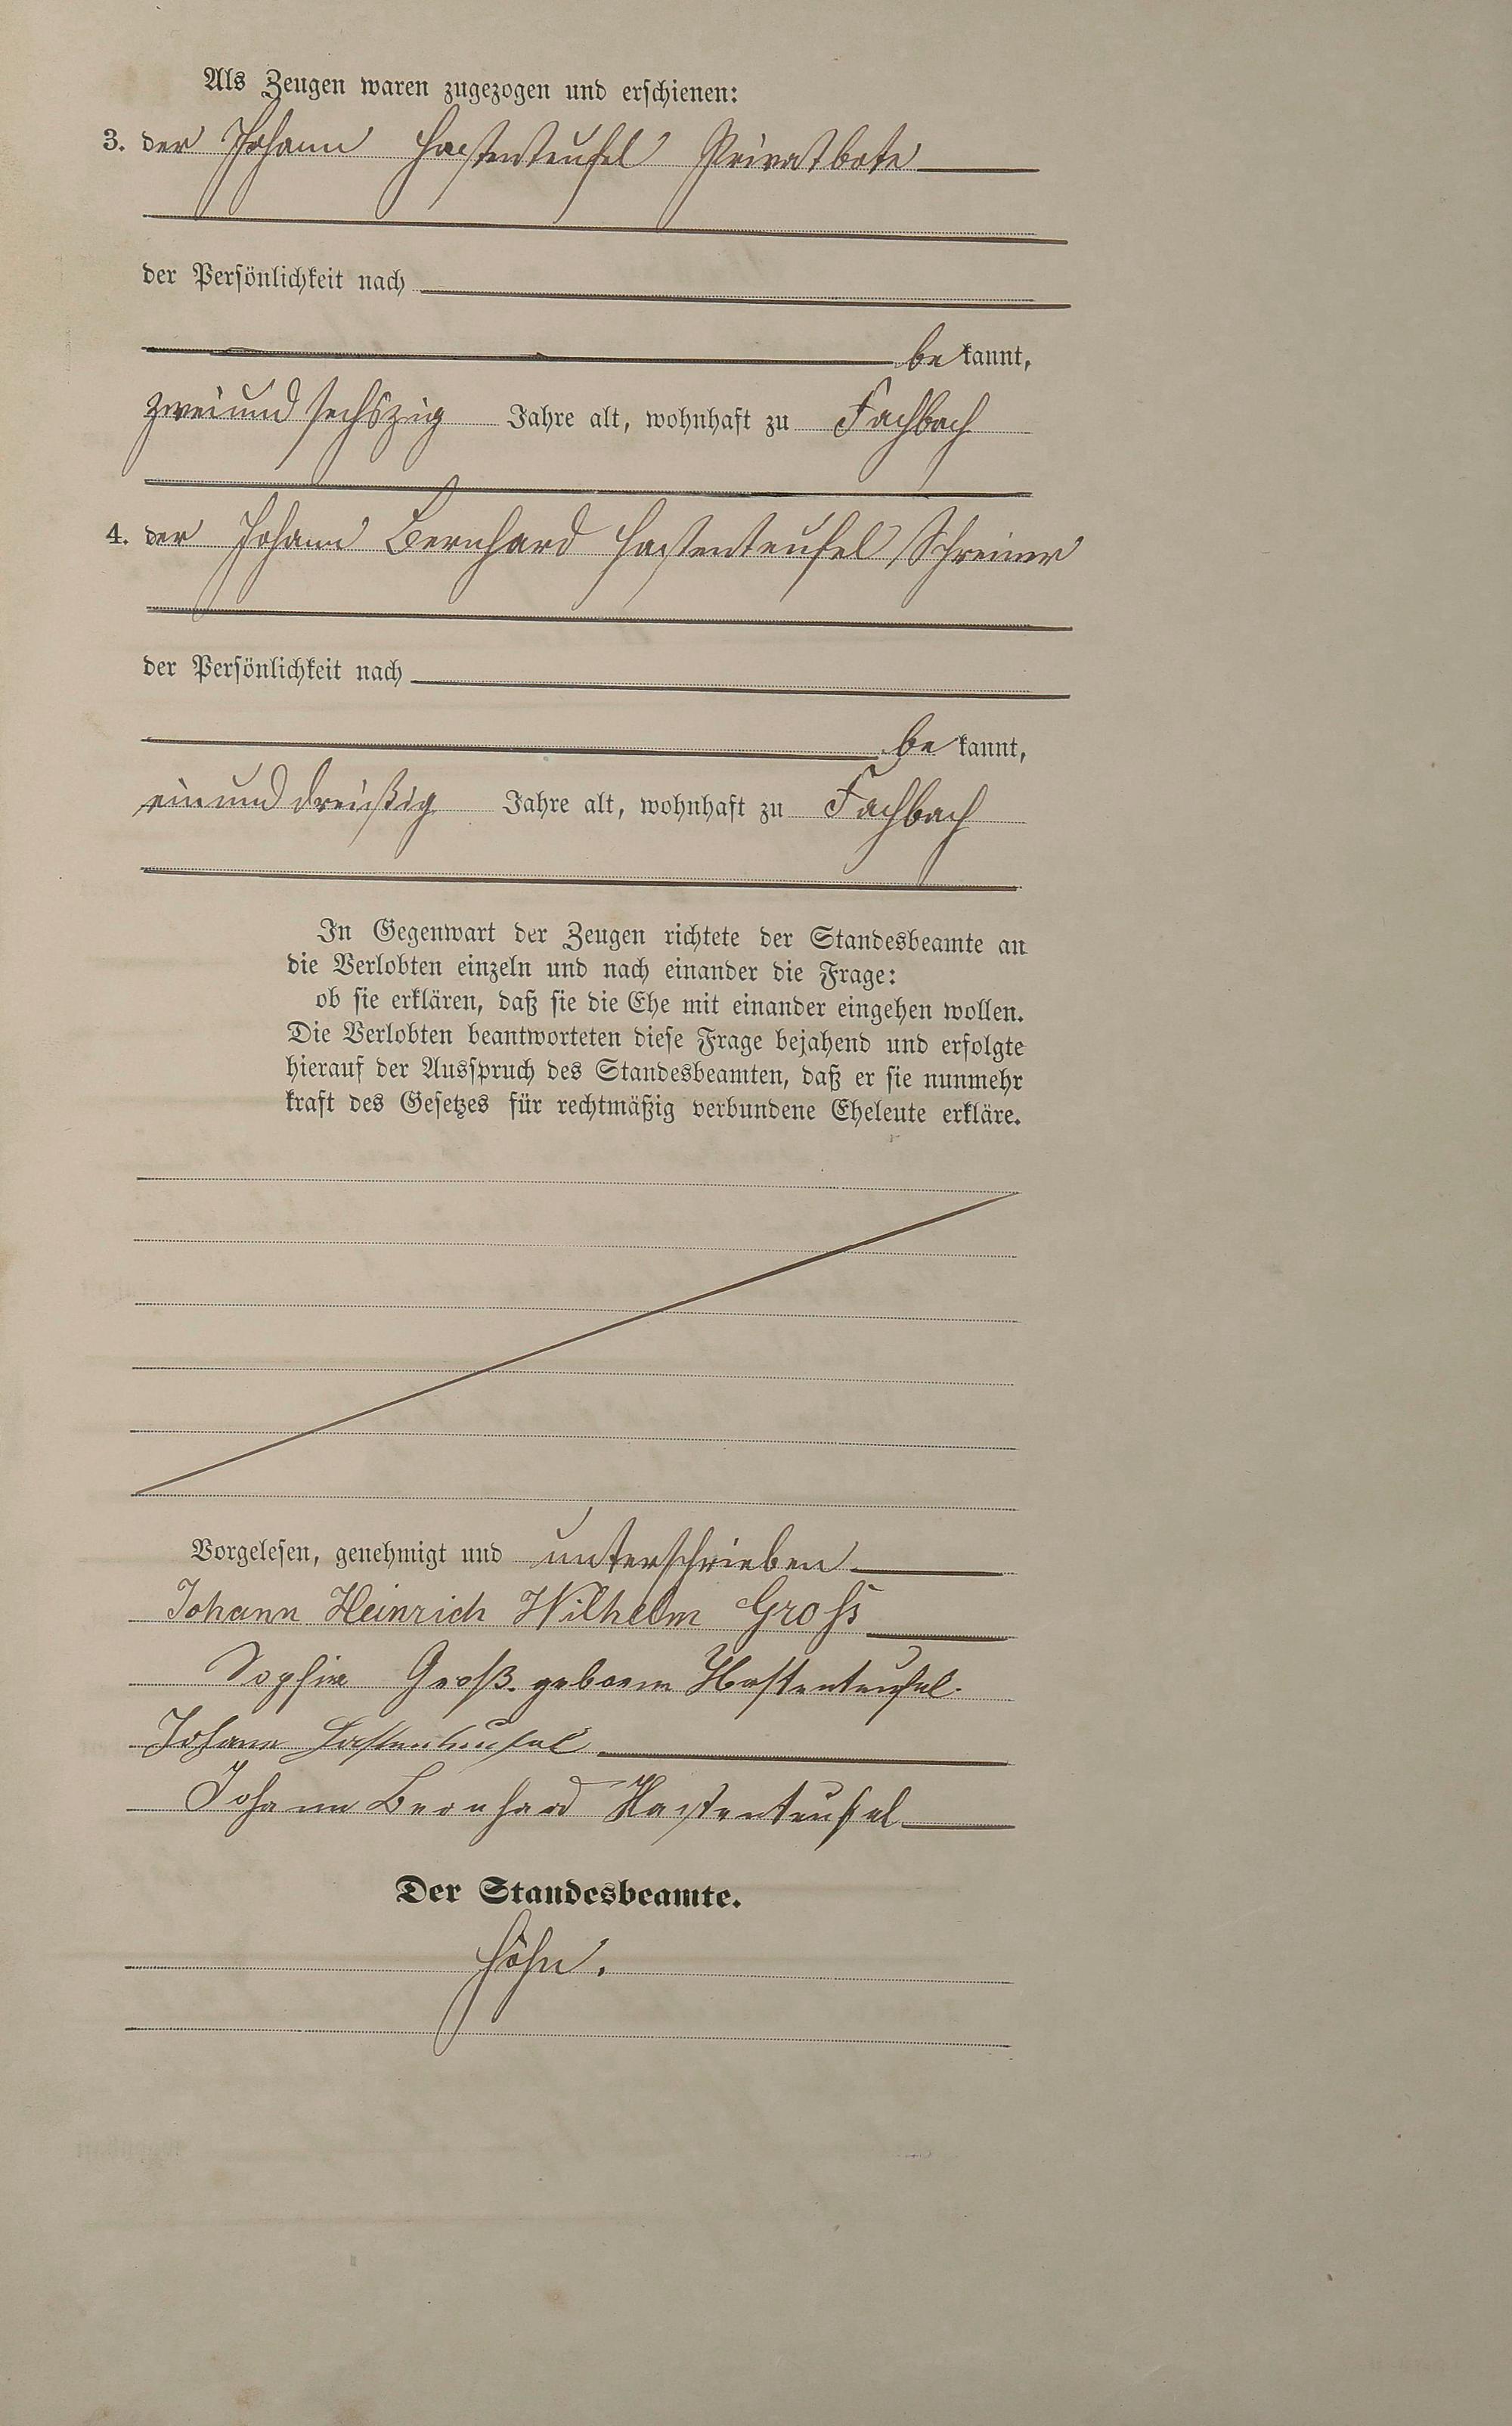 Als Zeugen waren zugezogen und erschienen:
3. der Johann Hastenteufel Privatbote
der Persönlichkeit nach
be kannt,
zweiundsechszig Jahre alt, wohnhaft zu Fachbach
4. der Johann Bernhard Hastenteufel, Schreiner
der Persönlichkeit nach
be kannt,
einunddreißig Jahre alt, wohnhaft zu Fachbach
In Gegenwart der Zeugen richtete der Standesbeamte an
die Verlobten einzeln und nach einander die Frage:
ob sie erklären, daß sie die Ehe mit einander eingehen wollen.
Die Verlobten beantworteten diese Frage bejahend und erfolgte
hierauf der Ausspruch des Standesbeamten, daß er sie nunmehr
kraft des Gesetzes für rechtmäßig verbundene Eheleute erkläre.
Vorgelesen, genehmigt und unterschrieben
Johann Heinrich Wilhelm Groß
Sophie Groß geborene Hastenteufel.
Johann Hastenteufel
Johann Bernhard Hastenteufel
Der Standesbeamte.
Höhn.